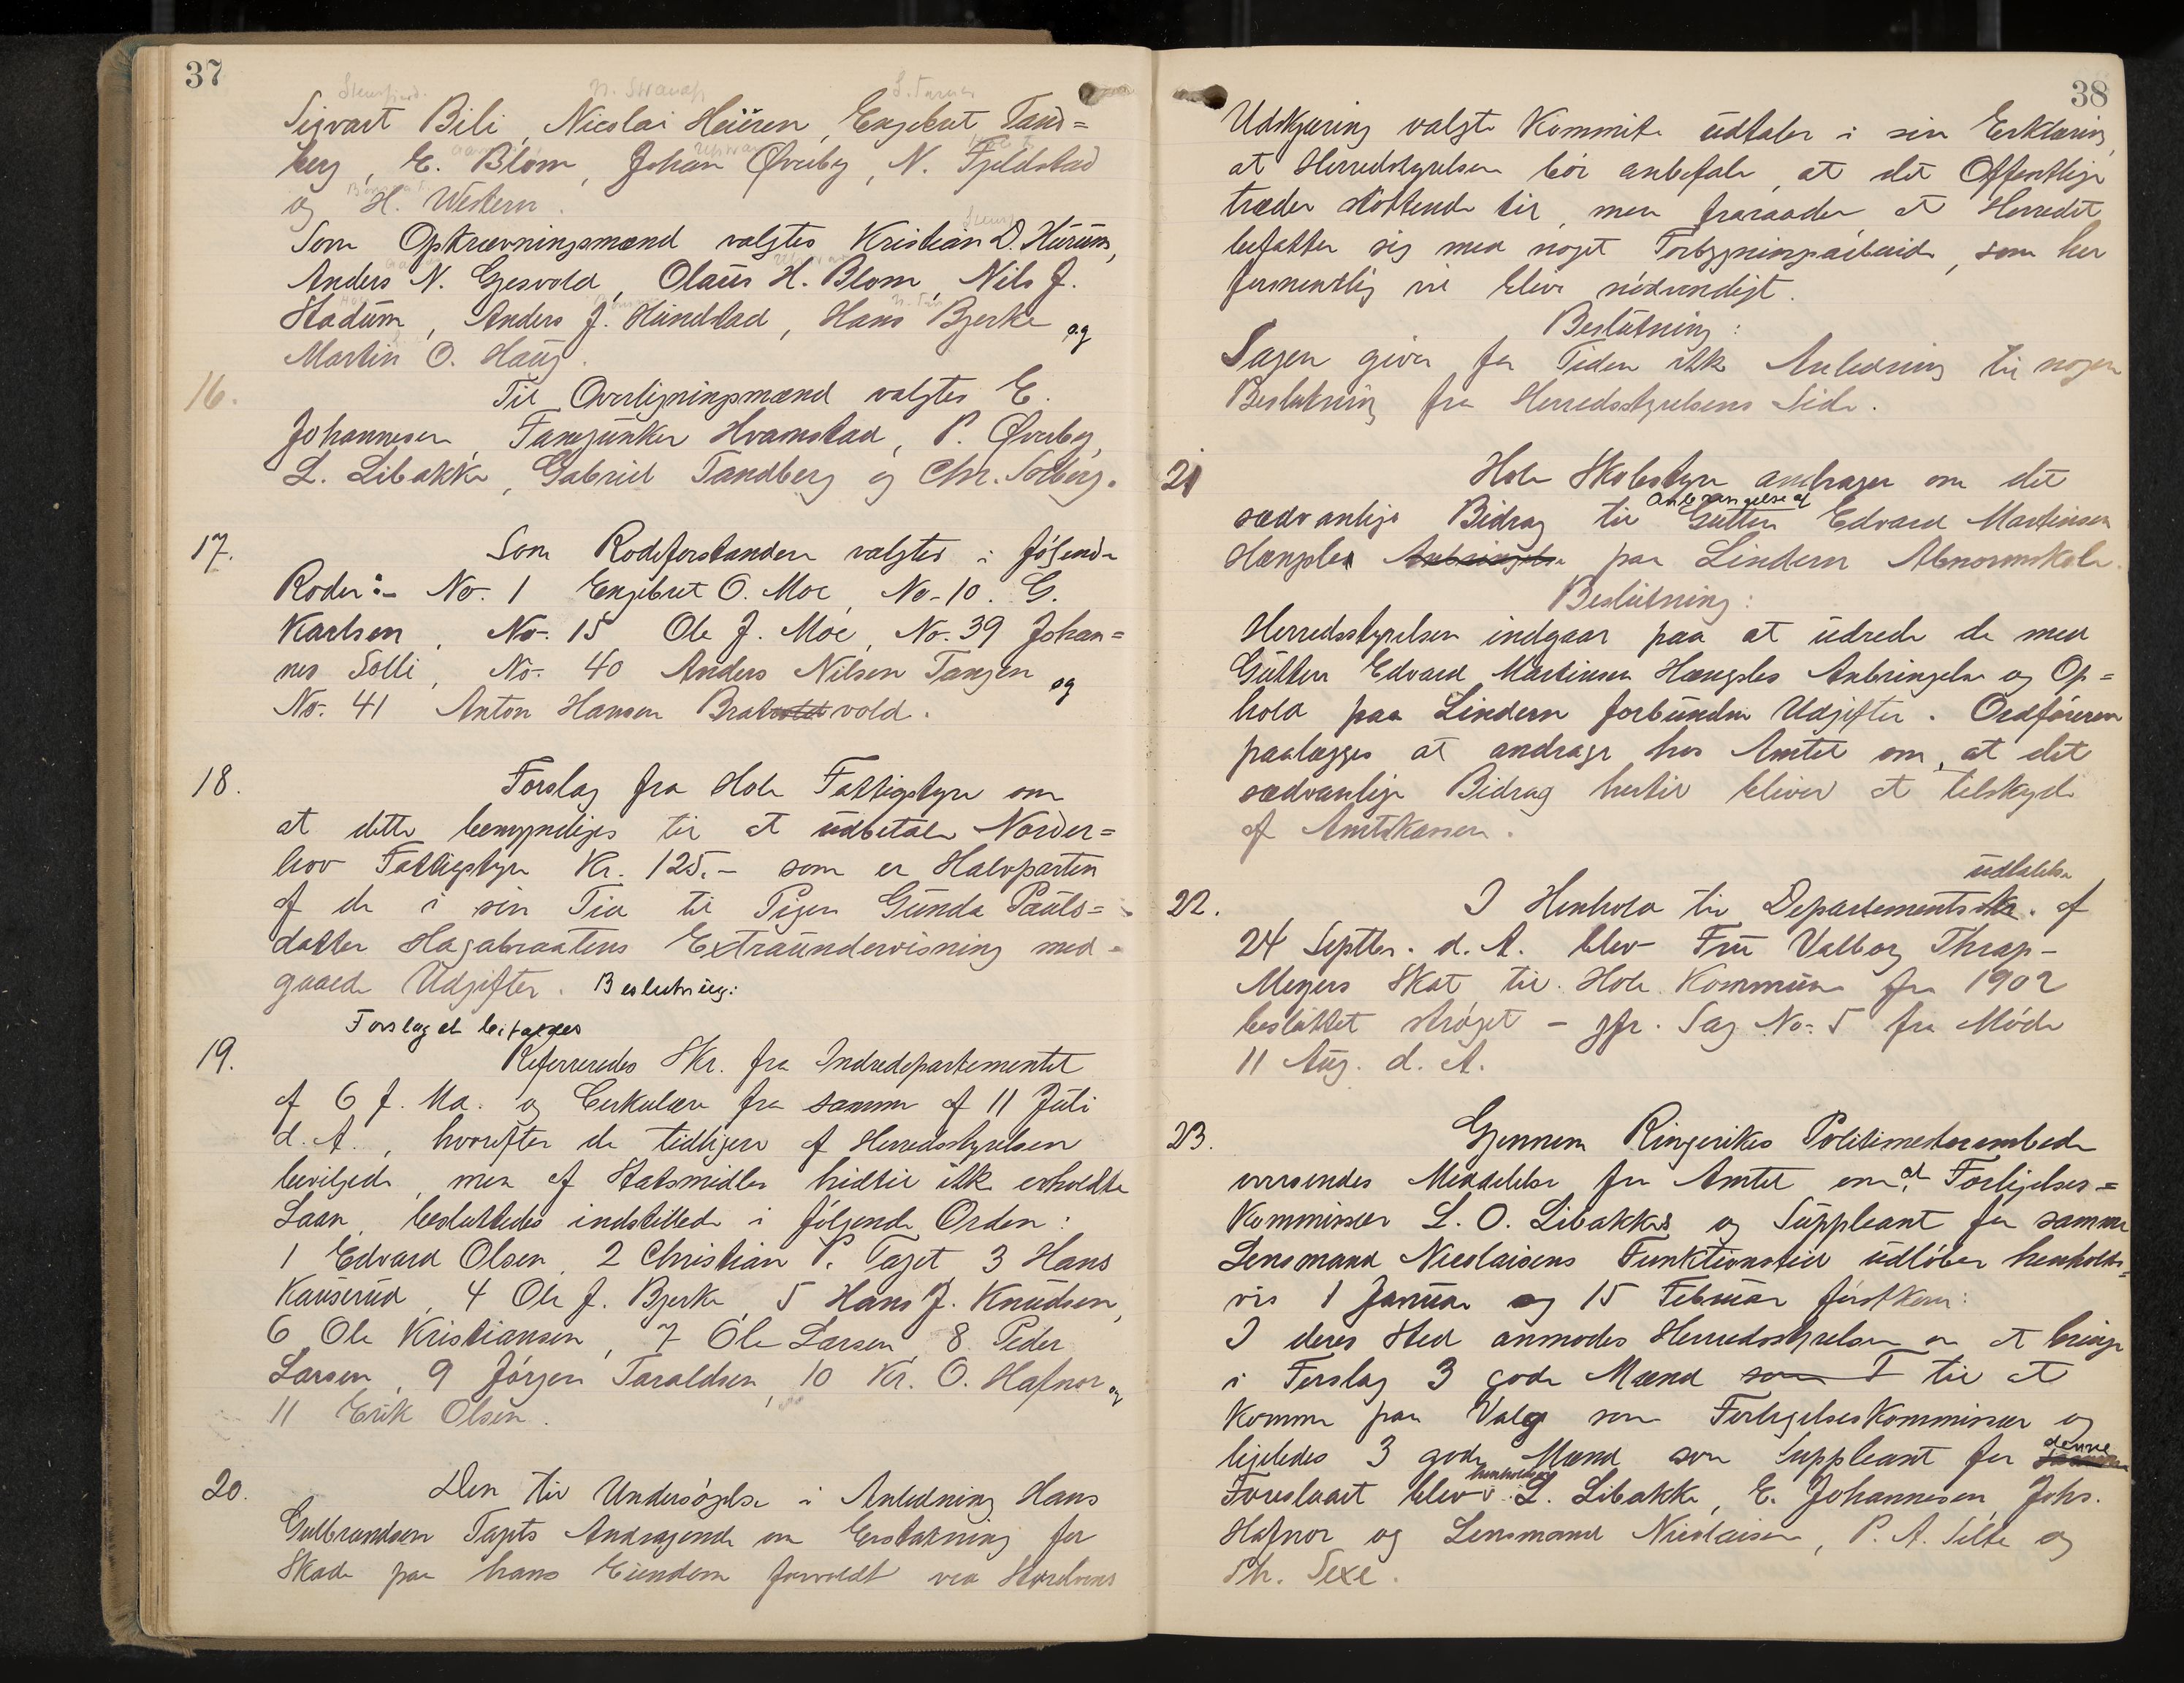 37
Sigvart Bili, Nicolai Heiëren, Engebret Tand=
berg, E. Blom, Johan Øverby, N. Fjeldstad
og H. Western.
Som Opkrævningsmænd valgtes Kristian D. Hurum,
Anders N. Gjesvold, Olaus H. Blom, Nils J.
Stadum, Anders J. Hundstad, Hans Bjerke og
Martin O. Haug.
16. Til Overligningsmænd valgtes E.
Johannesen, Fanejunker Hvamstad, P. Øverby,
L. Libakke, Gabriel Tandberg og Chr. Solberg.
17. Som Rodeforstandere valgtes i følgende
Roder:- No. 1 Engebret O. Moe, No. 10. G.
Karlsen, No. 15 Ole J. Moe, No. 39 Johan=
nes Solli, No. 40 Anders Nilsen Tangen og
No. 41 Anton Hansen Brat vold.
18. Forslag fra Hole Fattigstyre om
at dette bemyndiges til at udbetale Norder=
hov Fattigstyre Kr. 125.- som er Halvparten
af de i sin Tid til Pigen Gunda Pauls=
datter Hagabraatens Extraundervisning med-
gaaede Udgifter. Beslutning:
Forslaget bifaldes
19. Refereredes Skr. fra Indredepartementet
af 6 f. Ma. og Cirkulære fra samme af 11 Juli
d. A., hvorefter de tidligere af Herredsstyrelsen
bevilgede, men af Statsmidler hidtil ikke erholdte
Laan, besluttedes indstillede i følgende Orden:
1 Edvard Olsen, 2 Christian P. Taget 3 Hans
Kauserud, 4 Ole J. Bjerke, 5 Hans J. Knudsen,
6 Ole Kristiansen, 7 Ole Larsen, 8 Peder
Larsen, 9 Jørgen Taraldsen, 10 Kr. O. Hafnor og
11 Erik Olsen.
20. Den til Undersøgelse i Anledning Hans
Gulbrandsen Tagets Andragende om Erstatning for
Skade paa hans Eiendom forvoldt ved Storelvens
38
Udskjæring valgte Kommite udtaler i sin Erklæring,
at Herredstyrelsen bør anbefale, at det Offentlige
træder støttende til, men fraraader at Herredet
befatter sig med noget Forbygningsarbeide, som her
formentlig vil blive nødvendigt.
Beslutning:
Sagen giver for Tiden ikke Anledning til nogen
Beslutning fra Herredsstyrelsens Side.
21 Hole Skolestyre andrager om det
sædvanlige Bidrag til Anbringelse af Gutten Edvard Martinsen
Hængsles Anbringelse paa Lindern Abnormskole.
Beslutning:
Herredsstyrelsen indgaar paa at udrede de med
Gutten Edvard Martinsen Hængsles Anbringelse og Op=
hold paa Lindern forbundne Udgifter. Ordføreren
paalægges at andrage hos Amtet om, at det
sædvanlige Bidrag hertil bliver at tilskyde
af Amtskassen.
22. I Henhold til Departements skr. udtalelse af
24 Septbr. d. A. blev Fru Valborg Thrap-
Meyers Skat til Hole Kommune for 1902
besluttet strøget - jfr. Sag No. 5 fra Møde
11 Aug. d. A.
23. Gjennem Ringerikes Politimesterembede
oversendes Meddelelse fra Amtet om at Forligelses=
Kommissær L. O. Libakkes og Suppleant for samme
Lensmand Nicolaisens Funktionstid udløber henholds=
vis 1 Januar og 15 Februar førstkom:
I deres Sted anmodes Herredsstyrelsen om at bringe
i Forslag 3 gode Mænd som F til at
komme paa Valg som Forligelseskommissær og
ligeledes 3 gode Mænd som Suppleant for samme denne
Foreslaaet blev henholdsvis L. Libakke, E. Johannesen, Johs.
Hafnor og Lensmand Nicolaisen, P. A. Selte og
Th. Sexe.